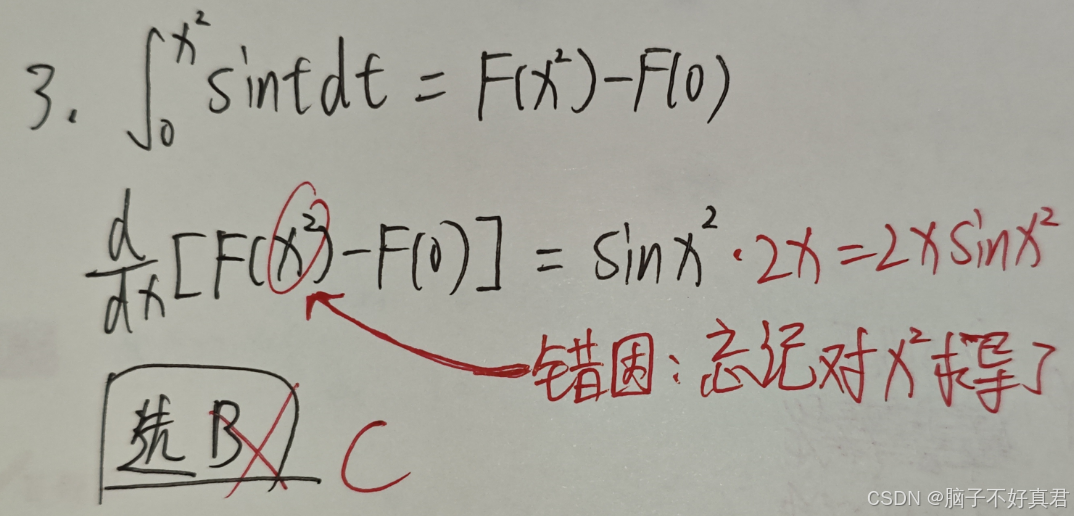 3. ∫₀^{x²} sint dt = F(x²)-F(0)
d/dx [F(x²)-F(0)] = sin x² · 2x = 2x sin x²
错因：忘记对x²求导了
选 B C
CSDN @脑子不好真君